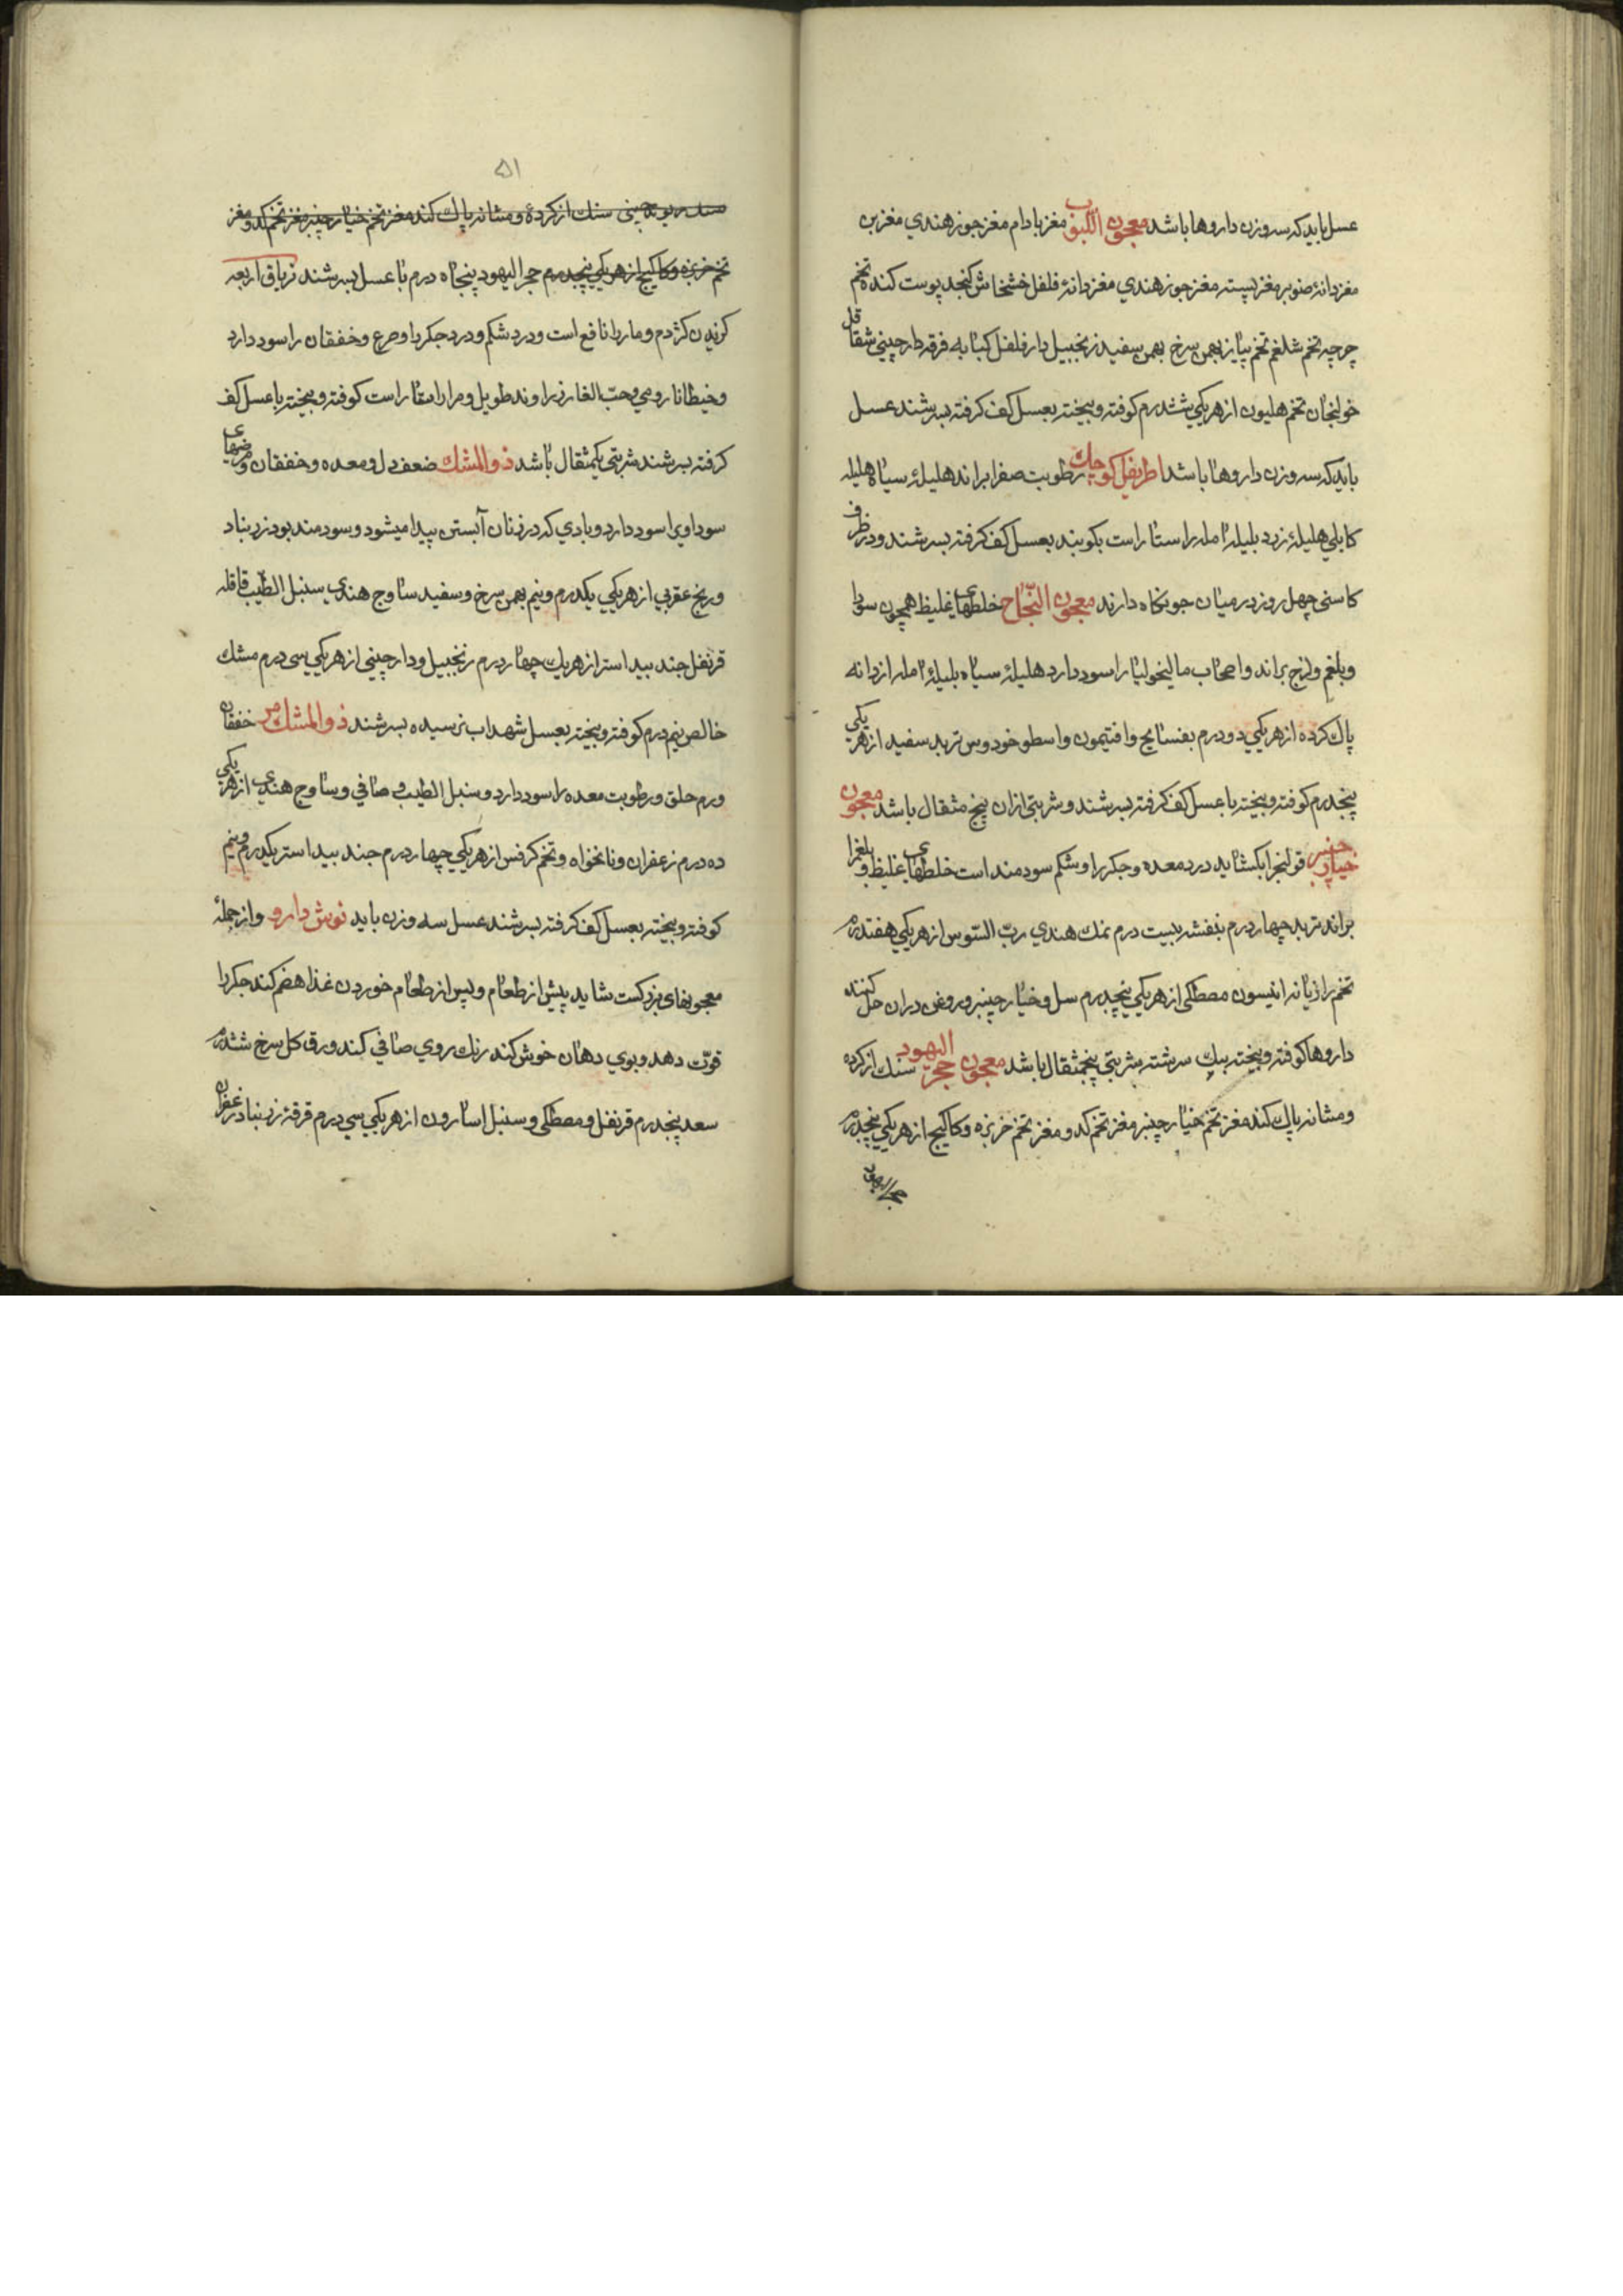 عسل باید که سه وزن داروها باشد معجون اللبوب مغز بادام مغز جوز هندي مغز بن
مغز دانهٔ صنوبر مغز پسته مغز جوز هندي مغز دانهٔ فلفل خشخاش کنجد پوست کنده تخم
جرجه تخم شلغم تخم پیاز بهمن سرخ بهمن سفید زنجبیل دارفلفل کبابه قرفه دارچيني شقاقل
خولنجان تخم هليون از هر یکي ششدرم کوفته و بیخته بعسل کف کرفته بسرشند عسل
باید که سه وزن داروها باشد اطریفل کوچک رطوبت صفرا براند هلیلهٔ سیاه هلیله
کابلي هلیلهٔ زرد بلیله امله راستا راست بکوبند بعسل کف کرفته بسرشند و در ظرف
کاسنی چهل روز در میان جو نکاه دارند معجون النجاح خلطهای غلیظ همچون سودا
و بلغم و لزج براند و اصحاب مالیخولیا را سود دارد هلیلهٔ سیاه بلیلهٔ امله از دانه
پاک کرده از هر یکي دو درم بفسایج و افتیمون و اسطوخودوس تربد سفید از هر یکي
پنجدرم کوفته و بیخته با عسل کف کرفته بسرشند و شربتی ازان پنج مثقال باشد معجون
خیارچنبر قولنج را بکشاید درد معده و جکر را و شکم سودمند است خلطهای غلیظ و بلغم را
براند تربد چهار درم بنفشه بیست درم نمک هندي ربّ السّوس از هر یکي هفتدرم
تخم رازیانه انیسون مصطکی از هر یکي پنجدرم سل و خیارچنبر و روغن دران حل کنند
داروها کوفته و بیخته سرشته شربتي پنجمثقال باشد معجون حجر الیهود سنك از کرده
و مشانه پاك کند مغز تخم خیار چنبر مغز تخم کدو مغز تخم خربزه و کاکنج از هر یکي پنجدرم
حجر الیهود
۵۱
سنك از کردهٔ و مشانه پاك کند مغز تخم خیار چنبر مغز تخم کدو مغز
تخم خربزه و کاکنج از هر یکي پنجدرم حجر الیهود پنجاه درم با عسل بسرشند تریاق اربعه
کزیدن کژدم و مار را نافع است و درد شکم و درد جکر را و صرع و خفقان را سود دارد
و خیطانا رومي و حبّ الغار زراوند طویل و مر راستا راست کوفته و بیخته با عسل کف
کرفته بسرشند شربتی یکمثقال باشد ذوالمشك ضعف دل و معده و خفقان و مرضهای
سوداوي را سود دارد و بادي که در زنان آبستن پیدا میشود و سودمند بود زرنباد
و رنج عقربي از هر یکي یکدرم و نیم بهمن سرخ و سفید ساوج هندي سنبل الطّیب قاقله
قرنفل جند بیداستر از هر یك چهار درم زنجبیل و دارچیني از هر یکي سی درم مشك
خالص نیم درم کوفته و بیخته بعسل شهد اب نرسیده بسرشند ذوالمشك مر خفقان
ورم حلق و رطوبت معده را سود دارد و سنبل الطیب و صافي و ساوج هندي از هر یکي
ده درم زعفران و نانخواه و تخم کرفس از هر یکي چهار درم جند بیداستر یکدرم و نیم
کوفته و بیخته بعسل کف کرفته بسرشند عسل سه وزن باید نوش دارو و از جملهٔ
معجونهای بزرکست شاید پیش از طعام و پس از طعام خوردن غذا هضم کند جکر را
قوّت دهد و بوي دهان خوش کند رنك روي صافي کند ورق کل سرخ ششدرم
سعد پنجدرم قرنفل و مصطکی و سنبل اسارون از هر یکي سي درم قرفهٔ زرنباد زعفران